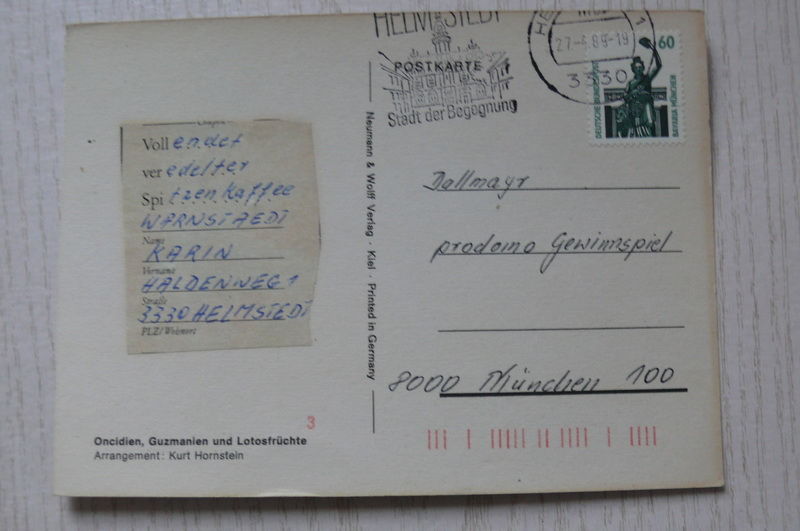 HELMSTEDT
27-4.89-19
3330
60
DEUTSCHE BUNDESPOST
BAVARIA MÜNCHEN
POSTKARTE
Stadt der Begegnung
Coupon
Voll endet
ver edelter
Spi tzenkaffee
WARNSTAEDT
Name
KARIN
Vorname
HALDENWEG 1
Straße
3330 HELMSTEDT
PLZ/Wohnort
Neumann & Wolff Verlag · Kiel · Printed in Germany
Dallmayr
prodomo Gewinnspiel
8000 München 100
3
Oncidien, Guzmanien und Lotosfrüchte
Arrangement: Kurt Hornstein